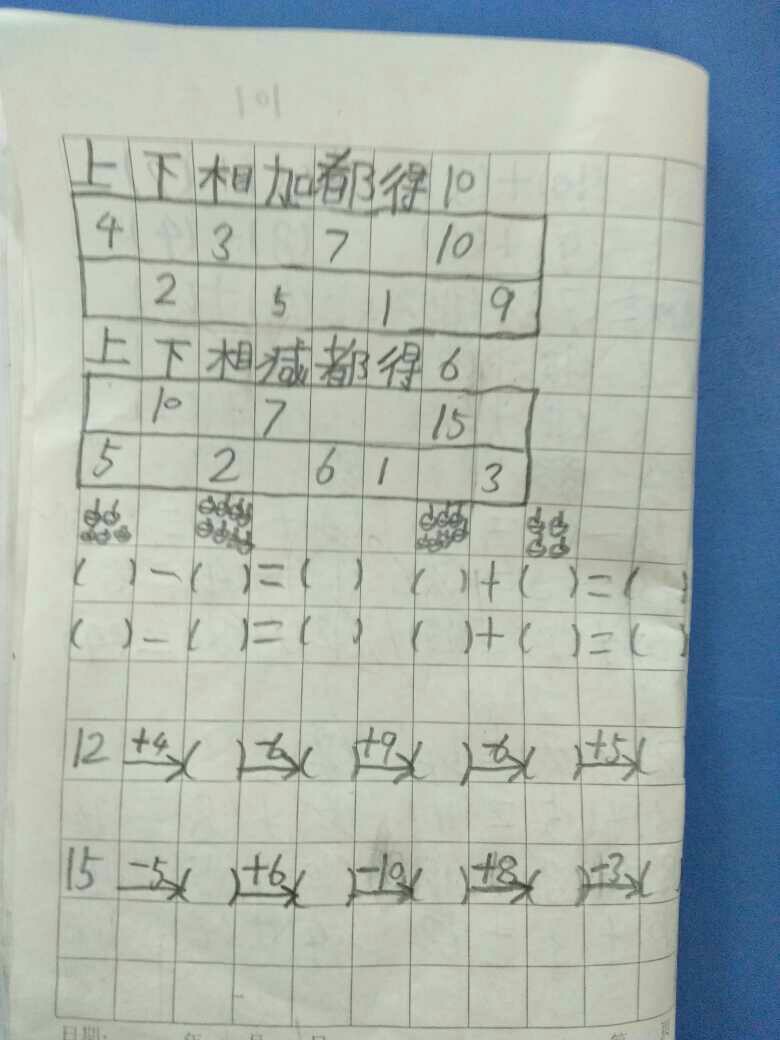 上下相加都得10
4 3 7 10
2 5 1 9
上下相减都得6
10 7 15
5 2 6 1 3
( )-( )=( ) ( )+( )=( )
( )-( )=( ) ( )+( )=( )
12 +4→( ) -6→( ) +9→( ) -6→( ) +5→(
15 -5→( ) +6→( ) -10→( ) +8→( ) -3→( )
日期: 年 月 日 第 页